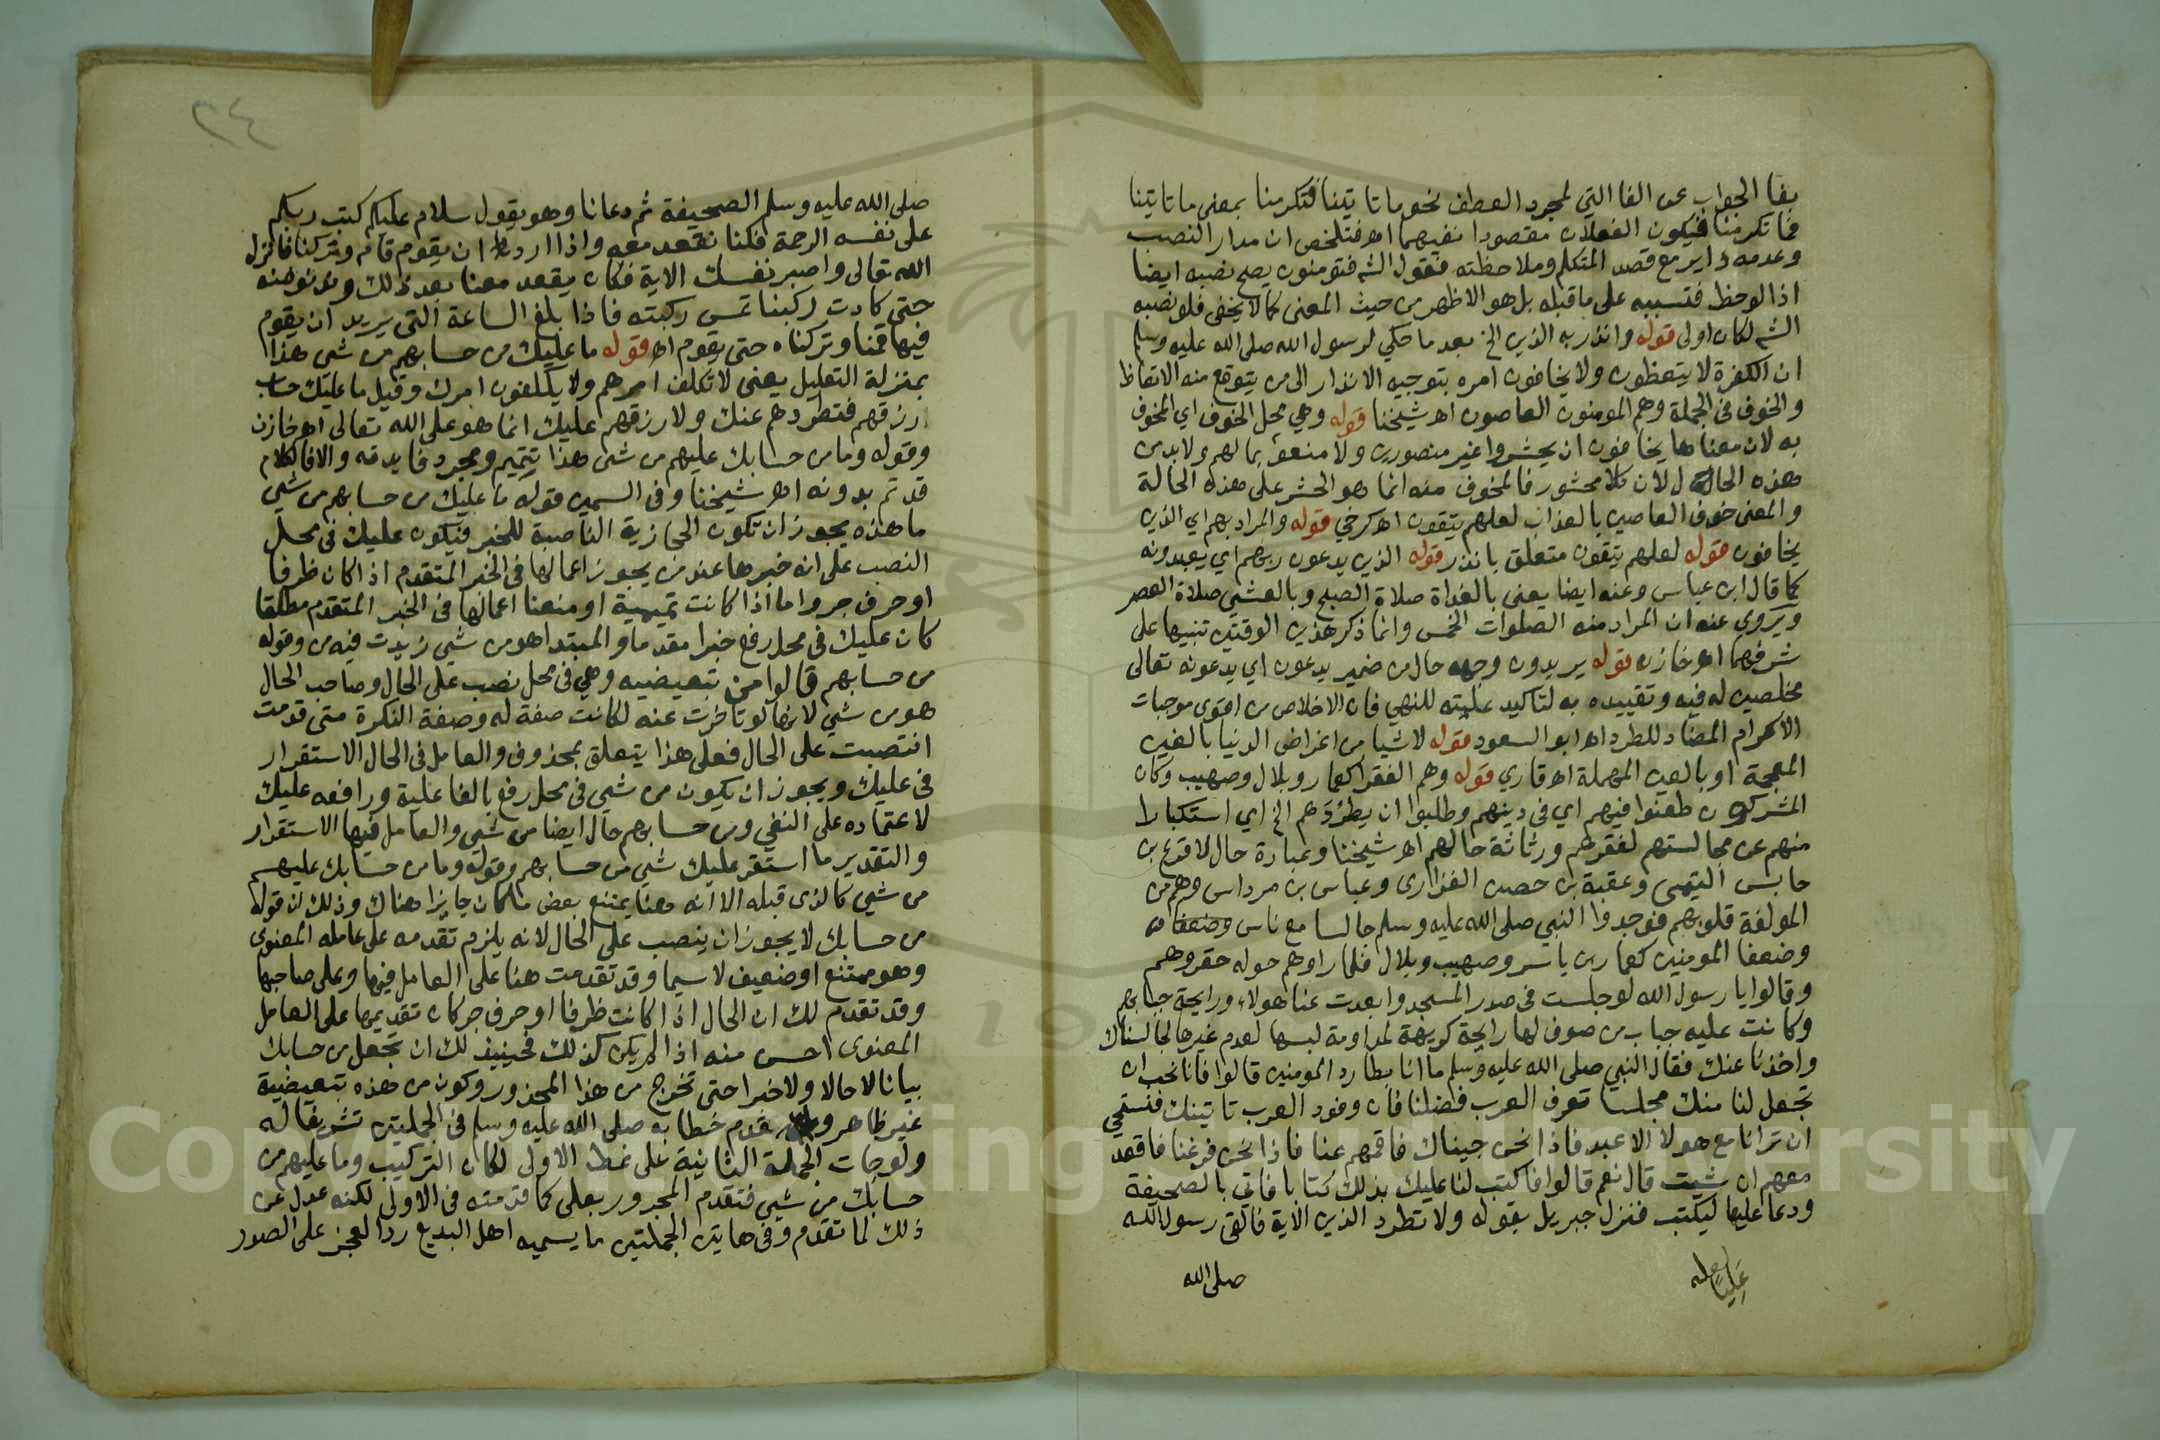 بفا الجواب عن الفا التي لمجرد العطف نحو ما تاتينا فتكرمنا بمعنى ما تاتينا
فما تكرمنا فيكون الفعلان مقصودا نفيهما اه فتلخص ان مدار النصب
وعدمه داير مع قصد المتكلم وملاحظته فقول الش فتومنون يصح نصبه ايضا
اذا لوحظ فتسببه على ما قبله بل هو الاظهر من حيث المعنى كما لا يخفى فلو نصبه
الش لكان اولى قوله وانذر به الذين الخ بعد ما حكي لرسول الله صلى الله عليه وسلم
ان الكفرة لا يتعظون ولا يخافون امره بتوجيه الانذار الى من يتوقع منه الاتعاظ
والخوف في الجملة وهم المومنون العاصون اه شيخنا قوله وهي محل الخوف اي المخوف
به لان معناها يخافون ان يحشروا غير منصورين ولا منعوق بمالهم ولا بد من
هذه الحال لان كلا محشور فالمخوف منه انما هو الحشر على هذه الحالة
والمعنى خوف العاصين بالعذاب لعلهم يتقون اه كرخي قوله والمراد بهم اي الذين
يخافون قوله لعلهم يتقون متعلق بانذر قوله الذين يدعون ربهم اي يعبدونه
كما قال ابن عباس وعنه ايضا يعنى بالغداة صلاة الصبح وبالعشي صلاة العصر
ويروى عنه ان المراد منه الصلوات الخمس وانما ذكر هذين الوقتين تنبيها على
شرفهما اه خازن قوله يريدون وجهه حال من ضمير يدعون اي يدعونه تعالى
مخلصين له فيه وتقييده به لتاكيد عليته للنهي فان الاخلاص من اقوى موجبات
الاكرام المضاد للطرد اه ابو السعود قوله لا شيا من اغراض الدنيا بالغين
المعجمة او بالعين المهملة اه قاري قوله وهم الفقرا كعمار وبلال وصهيب وكان
المشركون طعنوا فيهم اي في دينهم وطلبوا ان يطردهم الخ اي استكبارا
منهم عن مجالستهم لفقرهم ورثاثة حالهم اه شيخنا وعبارة حال الاقرع بن
حابس التيمى وعقبة بن حصن الفزارى وعباس بن مرداس وهم من
المولفة قلوبهم فوجدوا النبي صلى الله عليه وسلم جالسا مع ناس وضعفا
وضعفا المومنين كعمار بن ياسر وصهيب وبلال فلما راوهم حوله حقروهم
وقالوا يا رسول الله لو جلست في صدر المسجد وابعدت عنا هولاء ورايحة جبابهم
وكانت عليه جباب من صوف لها رايحة كريهة لمداومة لبسها لعدم غيرها لجالسناك
واخذنا عنك فقال النبي صلى الله عليه وسلم ما انا بطارد المومنين قالوا فانا نحب ان
تجعل لنا منك مجلسا تعرف العرب فضلنا فان وفود العرب تاتينك فنستحي
ان ترانا مع هولا الاعبد فاذا نحن جيناك فاقمهم عنا فاذا نحن فرغنا فاقعد
معهم ان شيت قال نعم قالوا فاكتب لنا عليك بذلك كتابا فاتي بالصحيفة
ودعا عليا ليكتب فنزل جبريل بقوله ولا تطرد الذين الاية فالقى رسول الله
عليا
صلى الله
٣٤
صلى الله عليه وسلم الصحيفة ثم دعانا وهو يقول سلام عليكم كتب ربكم
على نفسه الرحمة فكنا نقعد معه واذا اراد ان يقوم قام وتركنا فانزل
الله تعالى واصبر نفسك الاية فكان يقعد معنا بعد ذلك وندنو منه
حتى كادت ركبنا تمس ركبته فاذا بلغ الساعة التي يريد ان يقوم
فيها قمنا وتركناه حتى يقوم اه قوله ما عليك من حسابهم من شي هذا
بمنزلة التعليل يعنى لا تكلف امرهم ولا يكلفون امرك وقيل ما عليك حساب
رزقهم فتطردهم عنك ولا رزقهم عليك انما هو على الله تعالى اه خازن
وقوله وما من حسابك عليهم من شى هذا تتميم ومجرد فايدة والا فالكلام
قد تم بدونه اه شيخنا وفي السمين قوله ما عليك من حسابهم من شي
ما هذه يجوز ان تكون الحجازية الناصبة للخبر فيكون عليك في محل
النصب على انه خبرها عند من يجوز اعمالها في الخبر المتقدم اذا كان ظرفا
او حرف جر واما اذا كانت تميمية او منعنا اعمالها في الخبر المتقدم مطلقا
كان عليك في محل رفع خبرا مقدما والمبتدا هو من شي زيدت فيه من وقوله
من حسابهم قالوا من تبعيضيه وهي في محل نصب على الحال وصاحب الحال
هو من شي لانها لو تاخرت عنه لكانت صفة له وصفة النكرة متى قدمت
انتصبت على الحال فعلى هذا يتعلق بمحذوف والعامل في الحال الاستقرار
في عليك ويجوز ان يكون من شى في محل رفع بالفاعلية ورافعه عليك
لاعتماده على النفي ومن حسابهم حال ايضا من شي والعامل فيها الاستقرار
والتقدير ما استقر عليك شي من حسابهم وقوله وما من حسابك عليهم
من شي كالذى قبله الا انه هنا يمتنع بعض ما كان جايزا هناك وذلك ان قوله
من حسابك لا يجوز ان ينصب على الحال لانه يلزم تقدمه على عامله المعنوى
وهو ممتنع او ضعيف لا سيما وقد تقدمت هنا على العامل فيها وعلى صاحبها
وقد تقدم لك ان الحال اذا كانت ظرفا او حرف جر كان تقديمها على العامل
المعنوى احسن منه اذا لم يكن كذلك فحينيذ لك ان تجعل من حسابك
بيانا لا حالا ولا خبرا حتى تخرج من هذا المحذور وكون من هذه تبعيضية
غير ظاهر وقدم خطابه صلى الله عليه وسلم في الجملتين تشريفا له
ولو جات الجملة الثانية على نمط الاولى لكان التركيب وما عليهم من
حسابك من شي فتقدم المجرور بعلى كما قدمته في الاولى لكنه عدل عن
ذلك لما تقدم وفي هاتين الجملتين ما يسميه اهل البديع رد العجز على الصدور
Copyright © King Saud University